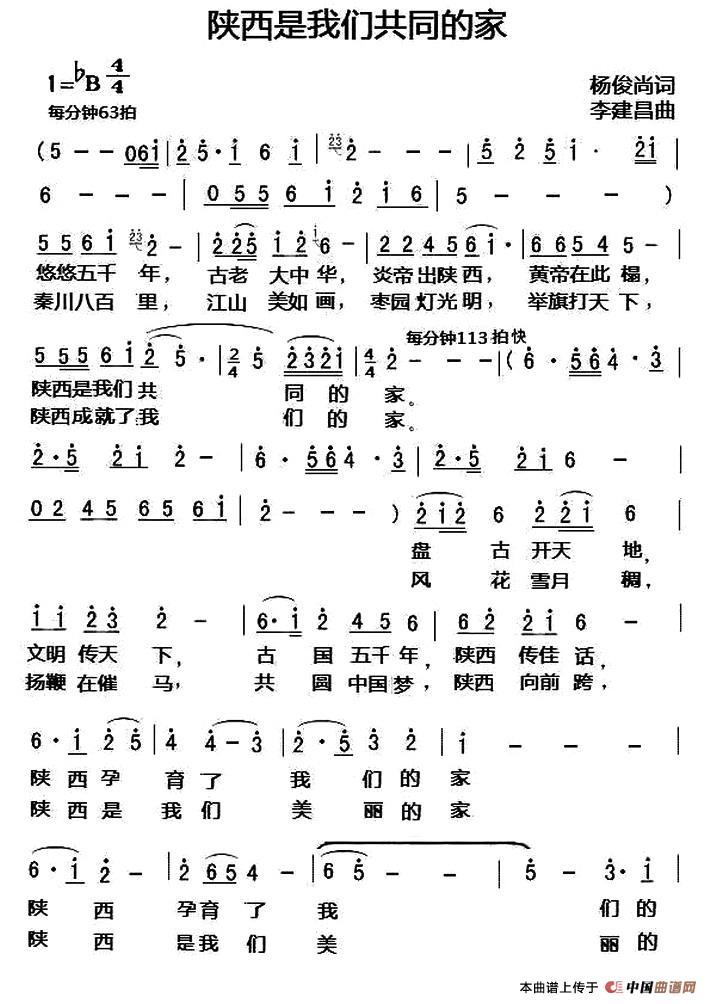 陕西是我们共同的家
1=♭B 4/4
杨俊尚词
每分钟63拍
李建昌曲
(5 - - 061 | 2 5·1 6 1 | 23 2 - - | 5 2 5 1 · 21 |
6 - - - | 0 5 5 6 1 2 2 1 6 | 5 - - - )
5 5 6 1 23 2 - | 2 2 5 1 2 1 6 | 2 2 4 5 6 1 · | 6 6 5 4 5 - |
悠悠五千 年， 古老 大中 华， 炎帝 出陕 西， 黄帝在此 榻，
秦川八百 里， 江山 美如 画， 枣园 灯光 明， 举旗打天 下，
每分钟113拍 快
5 5 5 6 1 2 5 · | 2/4 5 2321 | 4/4 2 - - | (6 · 5 6 4 · 3 |
陕西是我们 共 同 的 家。
陕西成就了我 们 的 家。
2·5 21 2 - | 6 · 5 6 4 · 3 | 2·5 21 6 - |
0 2 4 5 6 5 6 1 | 2 - - ) 212 6 2 21 6 |
盘 古 开天 地，
风 花 雪月 稠，
1 1 2 3 2 - | 6·1 2 4 5 6 | 6 2 2 1 6 - |
文明 传天 下， 古 国 五千 年， 陕西 传佳 话，
扬鞭 在催 马， 共 圆 中国 梦， 陕西 向前 跨，
6 · 1 2 5 | 4 4 - 3 | 2 · 5 3 2 | 1 - - - |
陕 西 孕 育 了 我 们 的 家
陕 西 是 我 们 美 丽 的 家
6 · 1 2 - | 2 6 5 4 - | 6 5 · - - | 5 - 3 · 1 |
陕 西 孕 育 了 我 们 的
陕 西 是 我 们 美 丽 的
本曲谱上传于 中国曲谱网